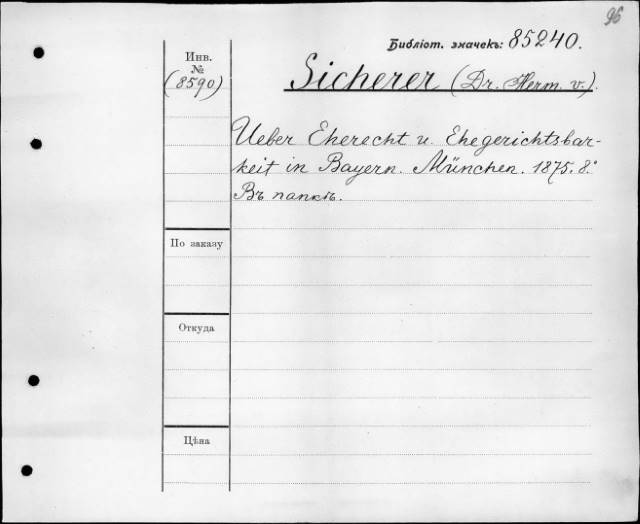 96
Библіот. значекъ: 85240.
Инв.
№
(8590)
Sicherer (Dr. Herm. v.).
Ueber Eherecht u. Ehegerichtsbar-
keit in Bayern. München. 1875. 8.°
Въ папкѣ.
По заказу
Откуда
Цѣна